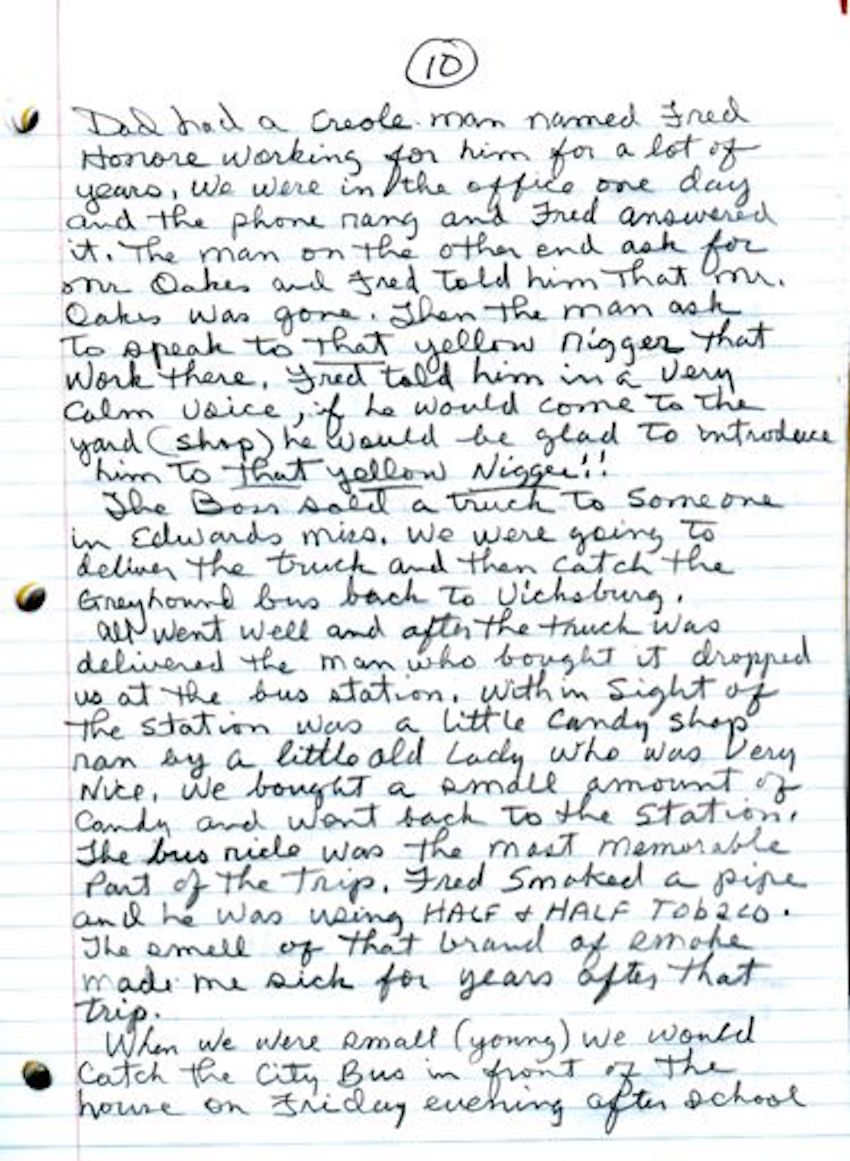 10
Dad had a Creole man named Fred
Honore working for him for a lot of
years, We were in the office one day
and the phone rang and Fred answered
it. The man on the other end ask for
mr Oakes and Fred told him that mr.
Oakes was gone. Then the man ask
to speak to that yellow nigger that
work there. Fred told him in a very
calm voice, if he would come to the
yard (shop) he would be glad to introduce
him to that yellow Nigger!!
The Boss sold a truck to someone
in Edwards miss. We were going to
deliver the truck and then catch the
Greyhound bus back to Vicksburg.
All went well and after the truck was
delivered the man who bought it dropped
us at the bus station. Within sight of
the station was a little candy shop
ran by a little old Lady who was very
Nice. We bought a small amount of
Candy and went back to the station.
The bus ride was the most memorable
part of the trip. Fred smoked a pipe
and he was using HALF & HALF Tobaco.
The smell of that brand of smoke
made me sick for years after that
trip.
When we were small (young) we would
Catch the City Bus in front of the
house on Friday evening after school